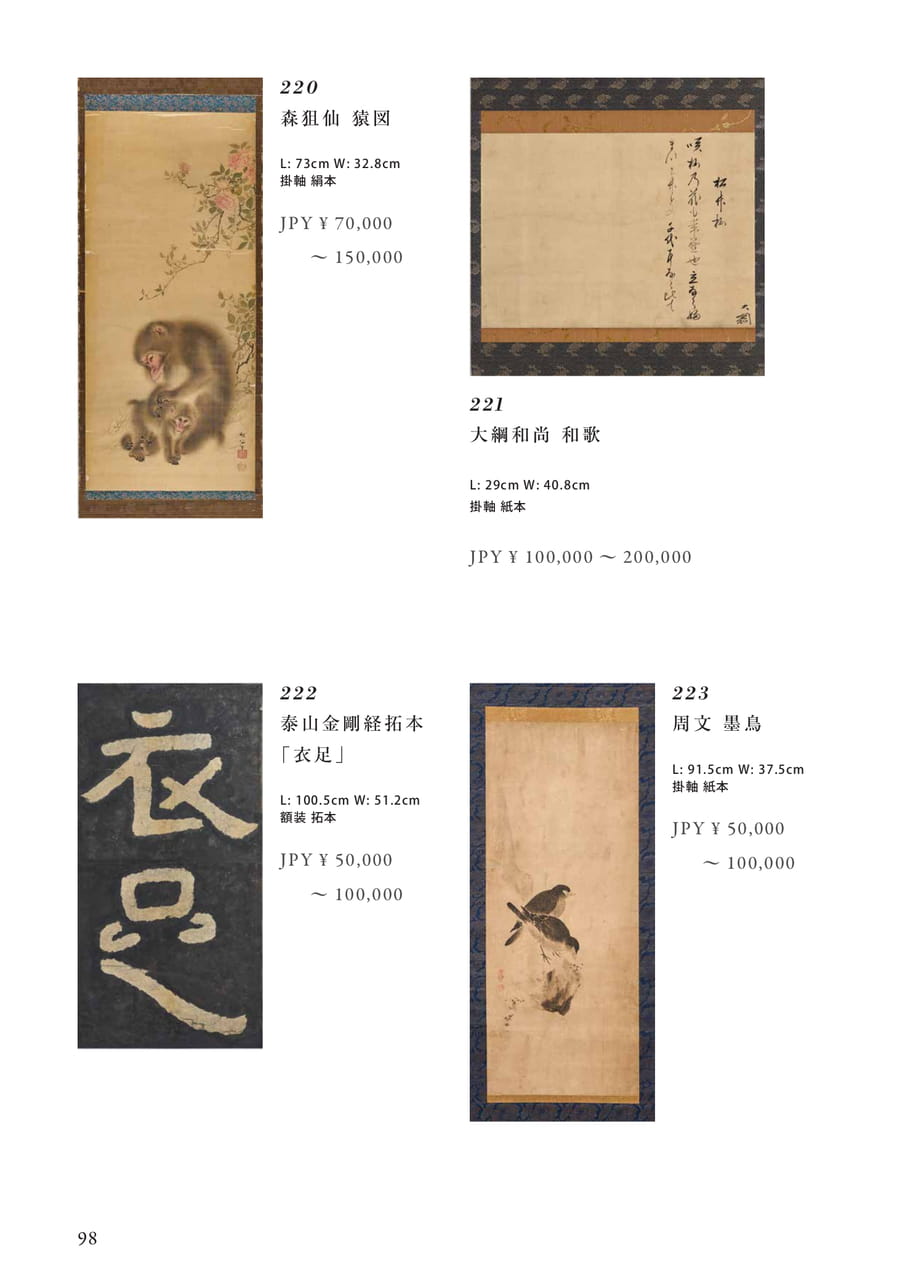 220
森狙仙 猿図
L: 73cm W: 32.8cm
掛軸 絹本
JPY ¥ 70,000
～ 150,000
松竹梅
大綱
221
大綱和尚 和歌
L: 29cm W: 40.8cm
掛軸 紙本
JPY ¥ 100,000 ～ 200,000
衣足
222
泰山金剛経拓本
「衣足」
L: 100.5cm W: 51.2cm
額装 拓本
JPY ¥ 50,000
～ 100,000
223
周文 墨鳥
L: 91.5cm W: 37.5cm
掛軸 紙本
JPY ¥ 50,000
～ 100,000
98